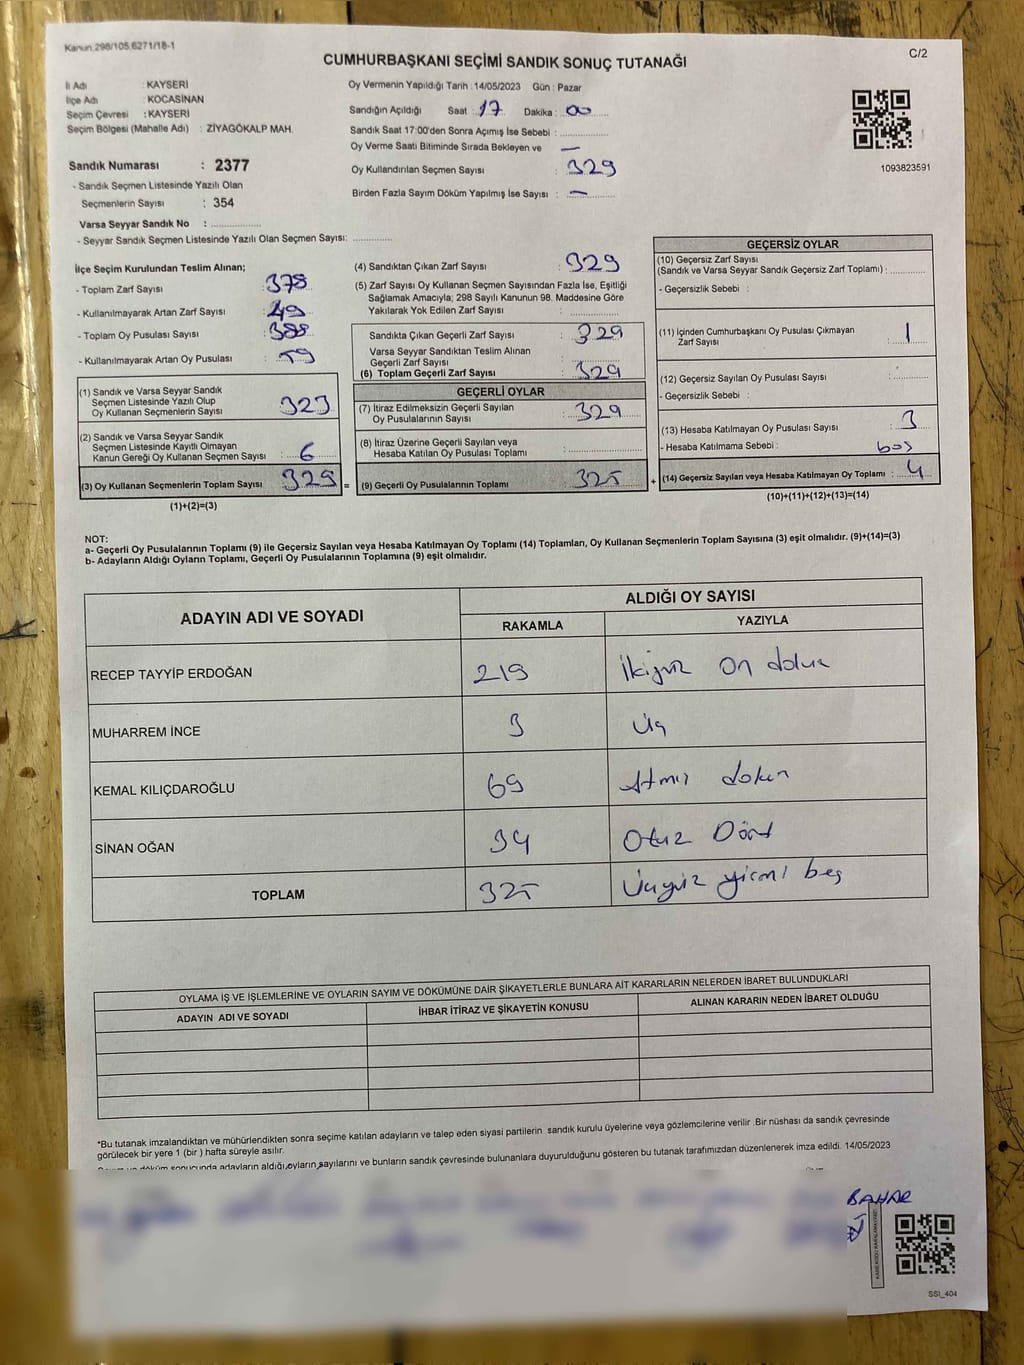 Kanun.298/105.6271/18-1
C/2
CUMHURBAŞKANI SEÇİMİ SANDIK SONUÇ TUTANAĞI
İl Adı : KAYSERİ
İlçe Adı : KOCASİNAN
Seçim Çevresi : KAYSERİ
Seçim Bölgesi (Mahalle Adı) : ZİYAGÖKALP MAH.
Sandık Numarası : 2377
- Sandık Seçmen Listesinde Yazılı Olan
Seçmenlerin Sayısı : 354
Varsa Seyyar Sandık No : ..............
- Seyyar Sandık Seçmen Listesinde Yazılı Olan Seçmen Sayısı: ............
Oy Vermenin Yapıldığı Tarih : 14/05/2023 Gün : Pazar
Sandığın Açıldığı Saat : 17 Dakika : 00
Sandık Saat 17:00'den Sonra Açımış İse Sebebi : ............
Oy Verme Saati Bitiminde Sırada Bekleyen ve —
Oy Kullandırılan Seçmen Sayısı : 329
Birden Fazla Sayım Döküm Yapılmış İse Sayısı : —
1093823591
İlçe Seçim Kurulundan Teslim Alınan;
- Toplam Zarf Sayısı : 378
- Kullanılmayarak Artan Zarf Sayısı : 49
- Toplam Oy Pusulası Sayısı : 388
- Kullanılmayarak Artan Oy Pusulası : 59
(1) Sandık ve Varsa Seyyar Sandık
Seçmen Listesinde Yazılı Olup
Oy Kullanan Seçmenlerin Sayısı : 323
(2) Sandık ve Varsa Seyyar Sandık
Seçmen Listesinde Kayıtlı Olmayan
Kanun Gereği Oy Kullanan Seçmen Sayısı : 6
(3) Oy Kullanan Seçmenlerin Toplam Sayısı : 329 =
(1)+(2)=(3)
(4) Sandıktan Çıkan Zarf Sayısı : 329
(5) Zarf Sayısı Oy Kullanan Seçmen Sayısından Fazla İse, Eşitliği
Sağlamak Amacıyla; 298 Sayılı Kanunun 98. Maddesine Göre
Yakılarak Yok Edilen Zarf Sayısı : ............
Sandıkta Çıkan Geçerli Zarf Sayısı : 329
Varsa Seyyar Sandıktan Teslim Alınan
Geçerli Zarf Sayısı : ............
(6) Toplam Geçerli Zarf Sayısı : 329
GEÇERLİ OYLAR
(7) İtiraz Edilmeksizin Geçerli Sayılan
Oy Pusulasının Sayısı : 329
(8) İtiraz Üzerine Geçerli Sayılan veya
Hesaba Katılan Oy Pusulası Toplamı : ............
(9) Geçerli Oy Pusulalarının Toplamı : 325 +
GEÇERSİZ OYLAR
(10) Geçersiz Zarf Sayısı
(Sandık ve Varsa Seyyar Sandık Geçersiz Zarf Toplamı) : ............
- Geçersizlik Sebebi :
(11) İçinden Cumhurbaşkanı Oy Pusulası Çıkmayan
Zarf Sayısı : 1
(12) Geçersiz Sayılan Oy Pusulası Sayısı : ............
- Geçersizlik Sebebi :
(13) Hesaba Katılmayan Oy Pusulası Sayısı : 3
- Hesaba Katılmama Sebebi : boş
(14) Geçersiz Sayılan veya Hesaba Katılmayan Oy Toplamı : 4
(10)+(11)+(12)+(13)=(14)
NOT:
a- Geçerli Oy Pusulalarının Toplamı (9) ile Geçersiz Sayılan veya Hesaba Katılmayan Oy Toplamı (14) Toplamları, Oy Kullanan Seçmenlerin Toplam Sayısına (3) eşit olmalıdır. (9)+(14)=(3)
b- Adayların Aldığı Oyların Toplamı, Geçerli Oy Pusulalarının Toplamına (9) eşit olmalıdır.
ADAYIN ADI VE SOYADI
ALDIĞI OY SAYISI
RAKAMLA YAZIYLA
RECEP TAYYİP ERDOĞAN 219 İkiyüz On dokuz
MUHARREM İNCE 3 Üç
KEMAL KILIÇDAROĞLU 69 Atmış dokuz
SİNAN OĞAN 34 Otuz Dört
TOPLAM 325 Üçyüz yirmi beş
OYLAMA İŞ VE İŞLEMLERİNE VE OYLARIN SAYIM VE DÖKÜMÜNE DAİR ŞİKAYETLERLE BUNLARA AİT KARARLARIN NELERDEN İBARET BULUNDUKLARI
ADAYIN ADI VE SOYADI İHBAR İTİRAZ VE ŞİKAYETİN KONUSU ALINAN KARARIN NEDEN İBARET OLDUĞU
*Bu tutanak imzalandıktan ve mühürlendikten sonra seçime katılan adayların ve talep eden siyasi partilerin sandık kurulu üyelerine veya gözlemcilerine verilir .Bir nüshası da sandık çevresinde
görülecek bir yere 1 (bir ) hafta süreyle asılır.
döküm sonucunda adayların aldığı oyların sayılarını ve bunların sandık çevresinde bulunanlara duyurulduğunu gösteren bu tutanak tarafımızdan düzenlenerek imza edildi. 14/05/2023
BAHAR
SSI_404